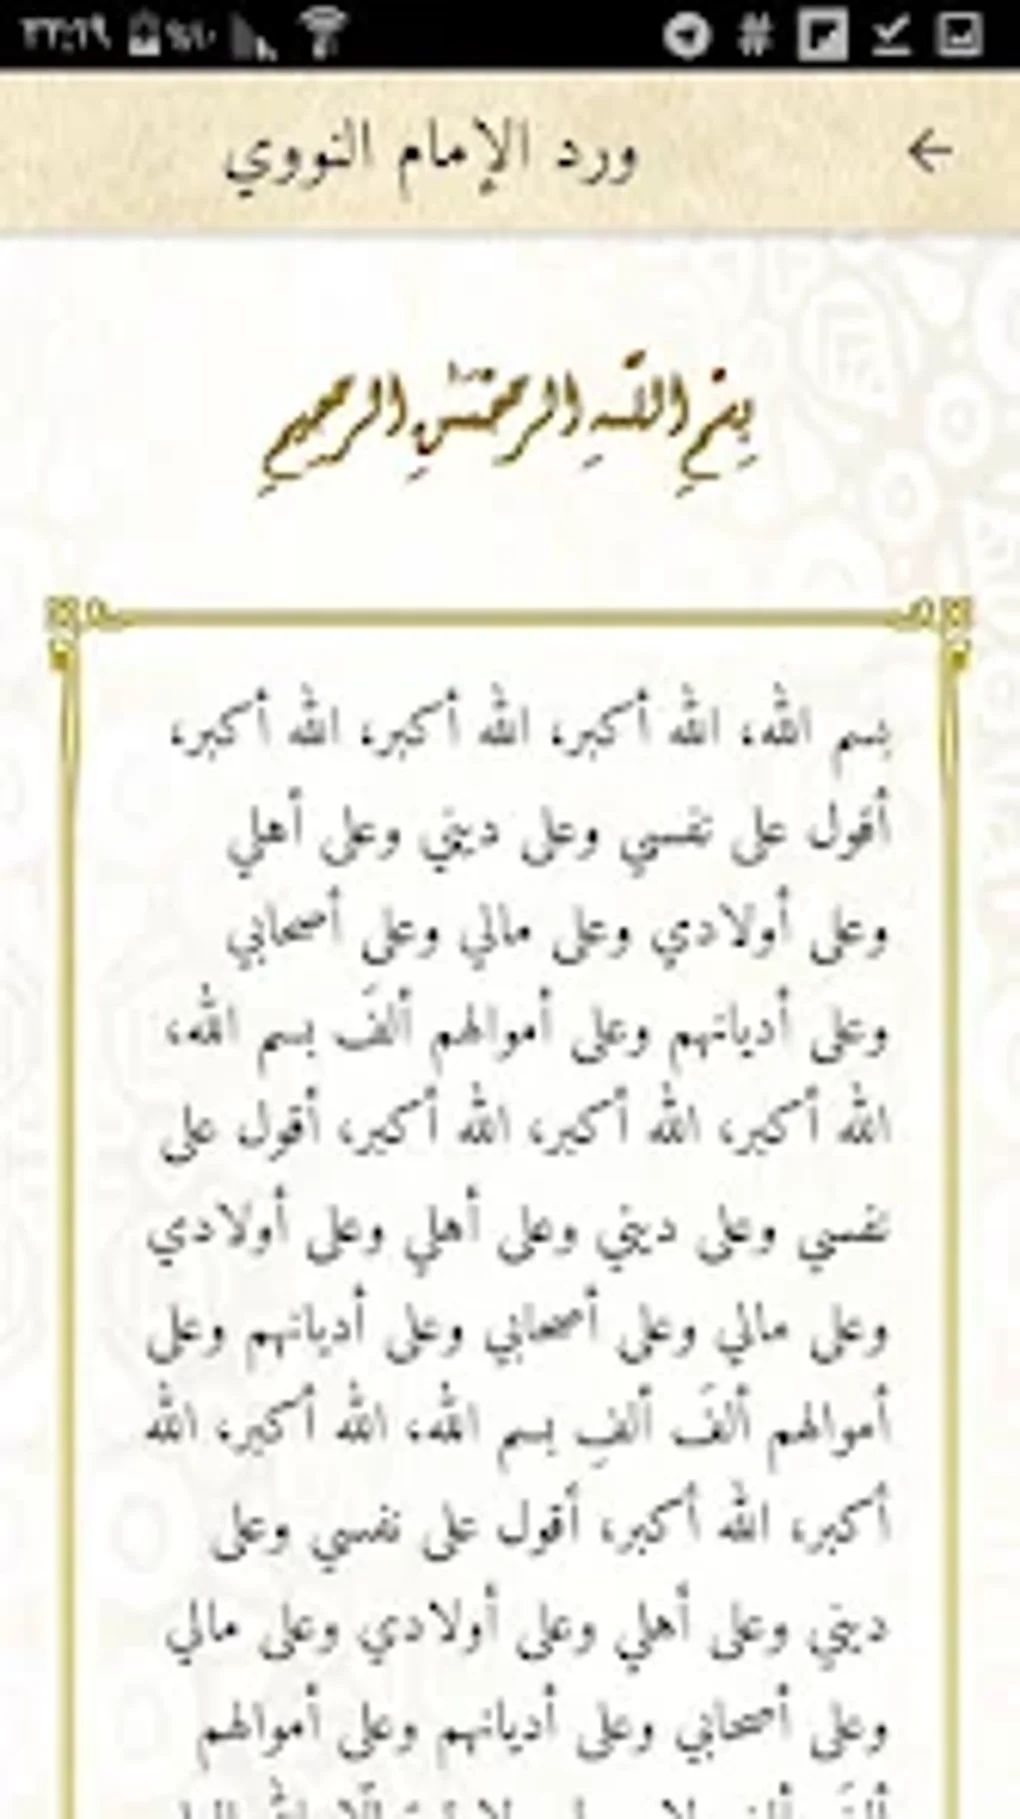 ٢٢:١٩ %١٠
ورد الإمام النووي
بِسْمِ اللَّهِ الرَّحْمَٰنِ الرَّحِيمِ
بسم الله، الله أكبر، الله أكبر، الله أكبر،
أقول على نفسي وعلى ديني وعلى أهلي
وعلى أولادي وعلى مالي وعلى أصحابي
وعلى أديانهم وعلى أموالهم ألفَ بسم الله،
الله أكبر، الله أكبر، الله أكبر، أقول على
نفسي وعلى ديني وعلى أهلي وعلى أولادي
وعلى مالي وعلى أصحابي وعلى أديانهم وعلى
أموالهم ألفَ ألفِ بسم الله، الله أكبر، الله
أكبر، الله أكبر، أقول على نفسي وعلى
ديني وعلى أهلي وعلى أولادي وعلى مالي
وعلى أصحابي وعلى أديانهم وعلى أموالهم